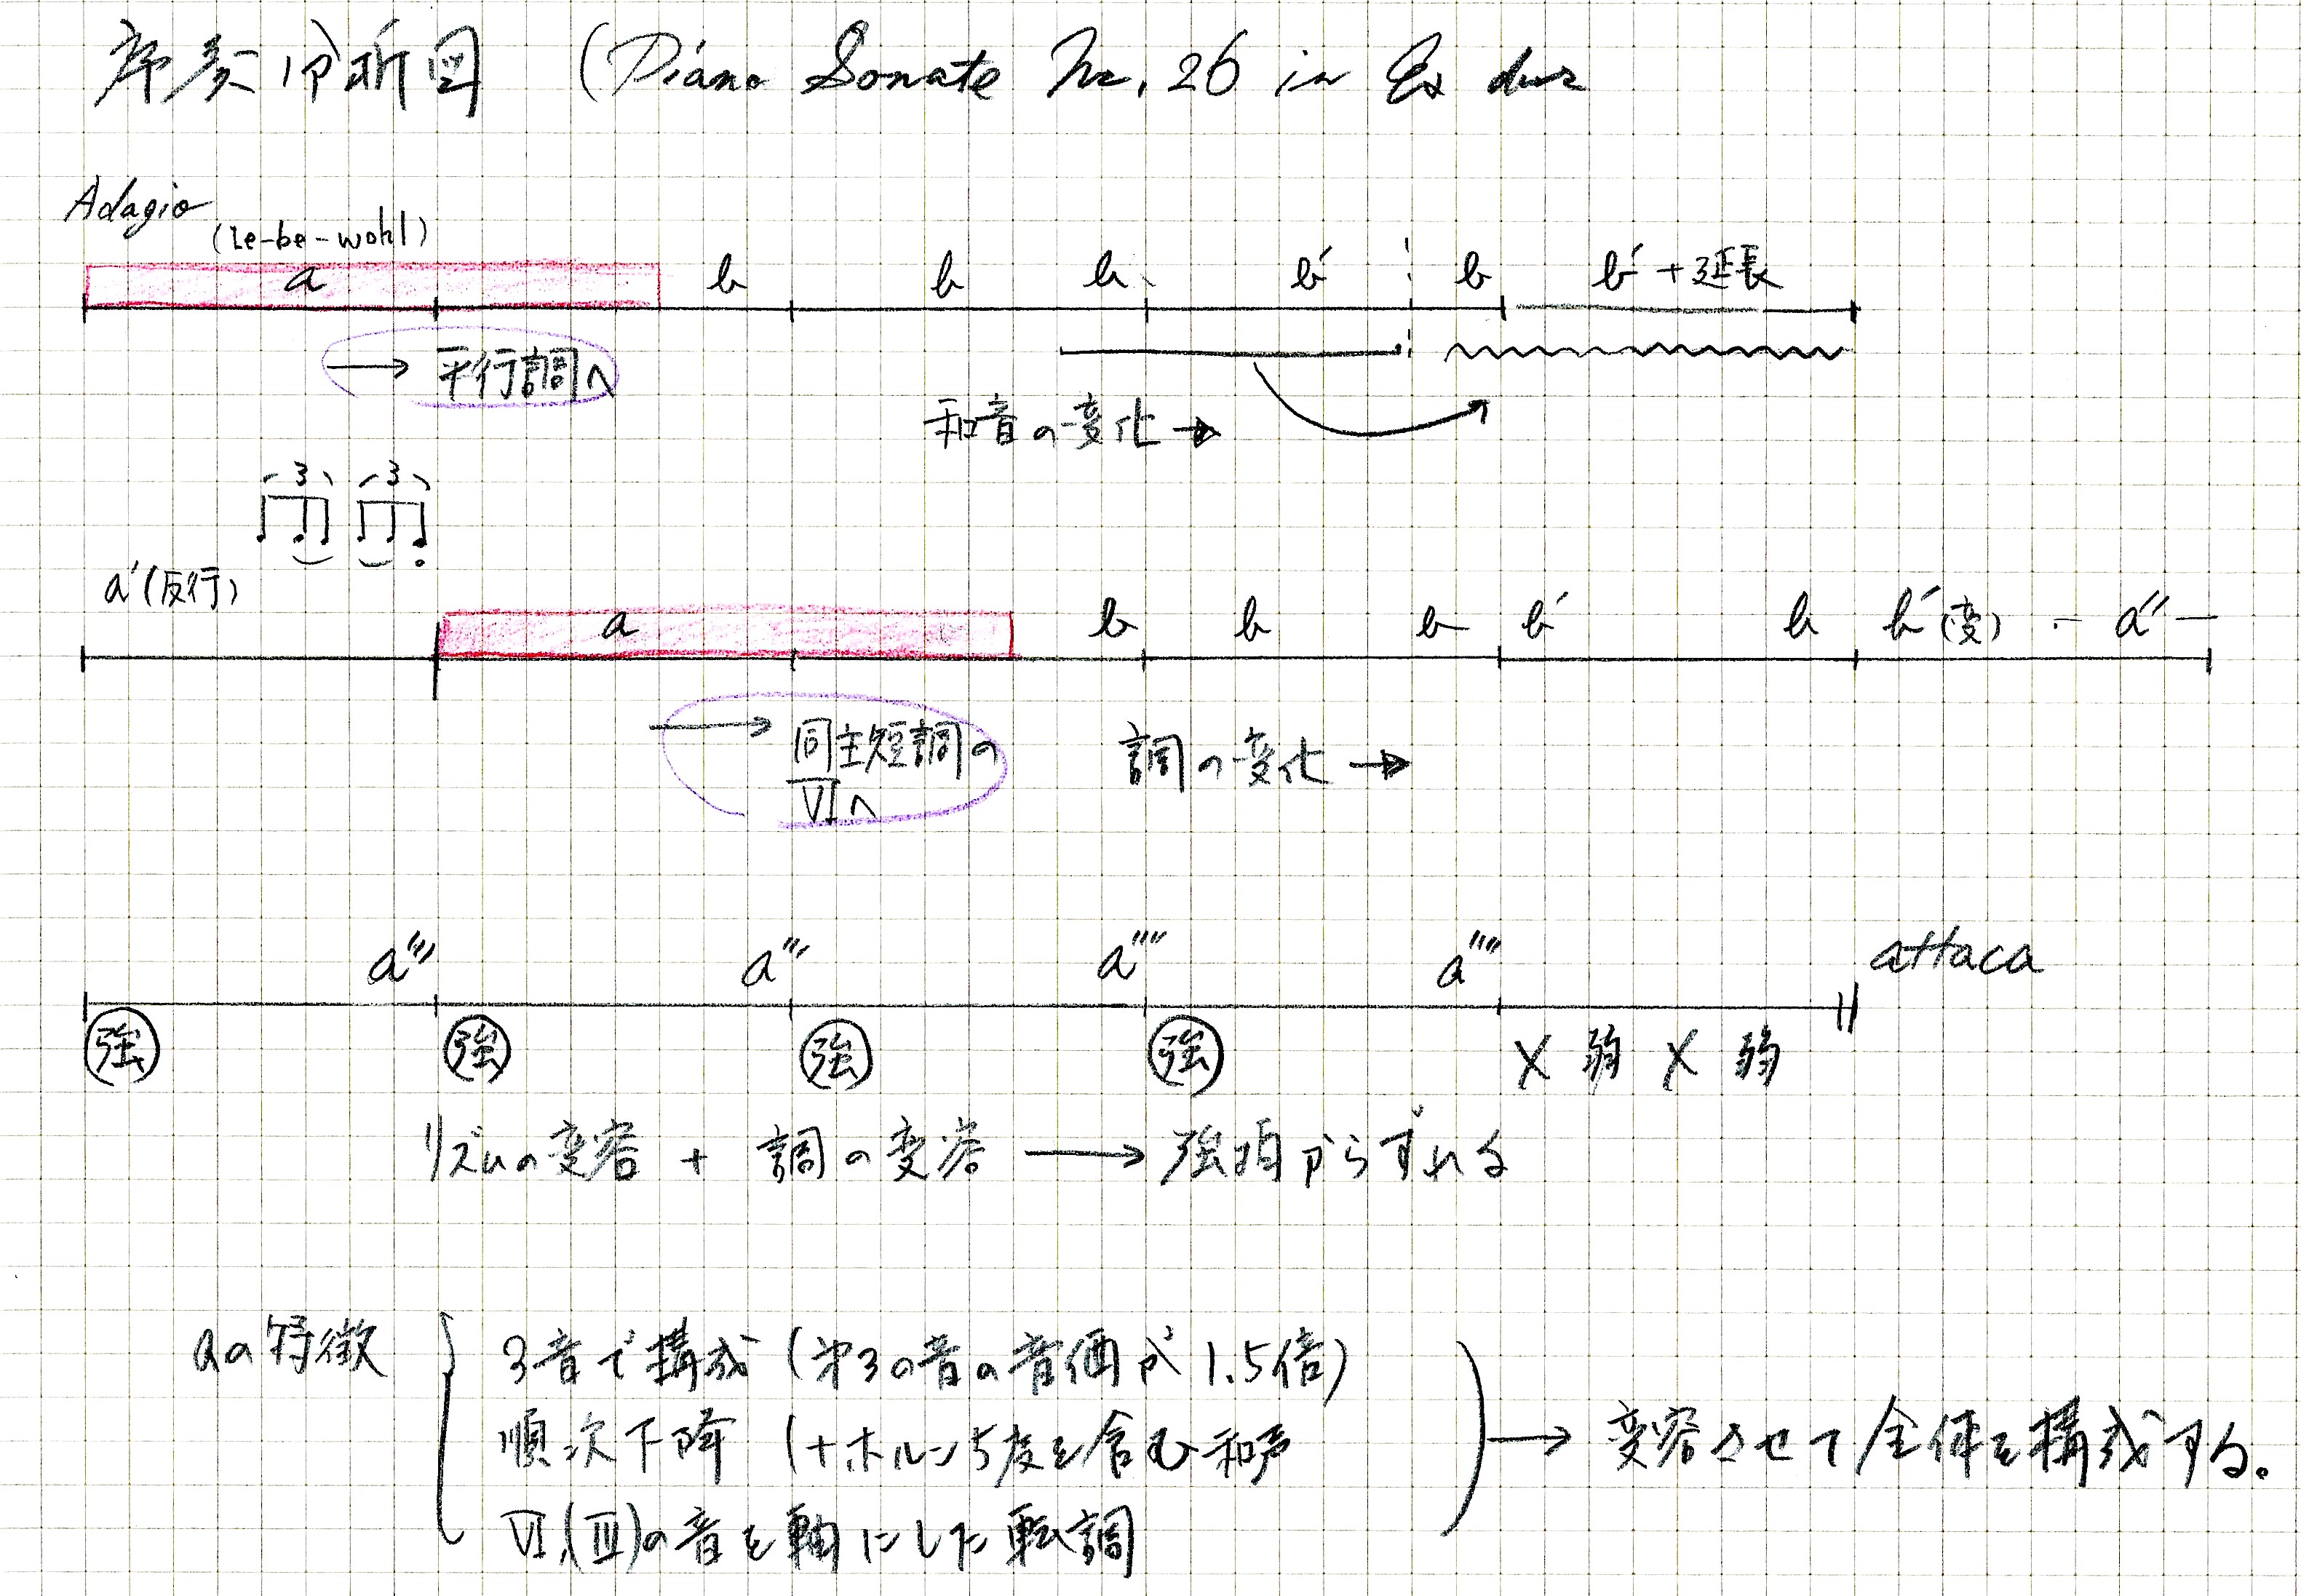 序奏分析図 (Piano Sonate Nr. 26 in Es dur
Adagio
(Le-be-wohl)
a b b b b′ b b′+延長
→ 平行調へ
和音の変化→
3 3
a′(反行)
a b b b b′ b b′(変) - a″ -
→ 同主短調の
VIへ
調の変化→
a‴ a‴ a⁗ a⁗ attaca
強 強 強 強 X 弱 X 弱
リズムの変容 + 調の変容 → 強拍からずれる
aの特徴
3音で構成 (第3の音の音価が1.5倍)
順次下降 (+ホルン5度を含む和声
VI,(III)の音を軸にした転調
→ 変容させて全体を構成する。